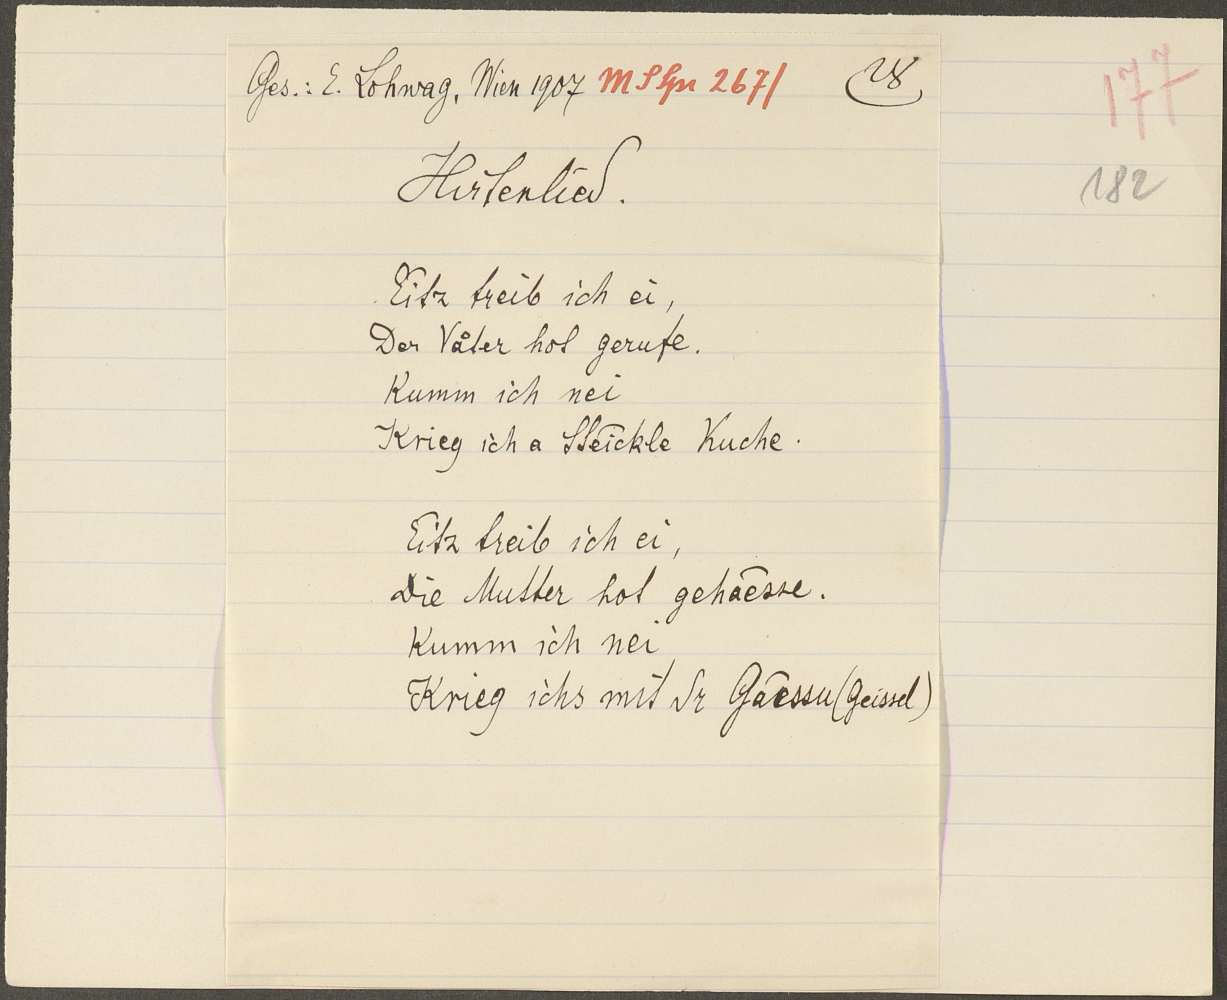 Ges.: E. Lohwag, Wien 1907 28
177
182
Hirtenlied.
Eitz treib ich ei,
Der Våter hot gerufe.
Kumm ich nei
Krieg ich a Steickle Kuche.
Eitz treib ich ei,
Die Mutter hot gehaesse.
Kumm ich nei
Krieg ichs mit dr Gaessu (Geissel)